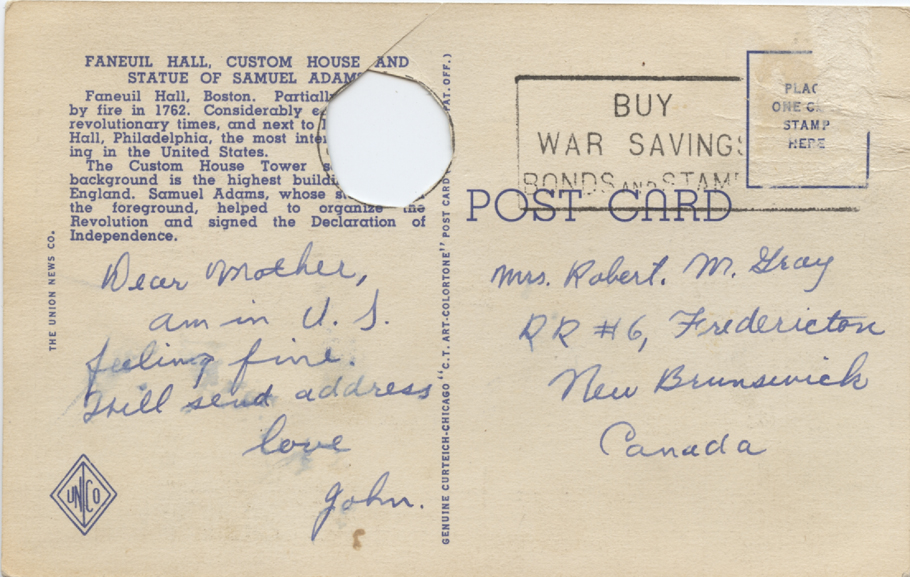 FANEUIL HALL, CUSTOM HOUSE AND
STATUE OF SAMUEL ADAMS
Faneuil Hall, Boston. Partially
by fire in 1762. Considerably
revolutionary times, and next to
Hall, Philadelphia, the most
ing in the United States.
The Custom House Tower
background is the highest
England. Samuel Adams, whose
the foreground, helped to organize the
Revolution and signed the Declaration of
Independence.
THE UNION NEWS CO.
Dear Mother,
am in U. S.
feeling fine.
Will send address
love
John.
UNCO
GENUINE CURTEICH-CHICAGO "C.T. ART-COLORTONE" POST CARD PAT. OFF.)
BUY
WAR SAVINGS
BONDS AND STAM
PLAC
ONE C
STAMP
HERE
POST CARD
Mrs. Robert. M. Gray
RR #6, Fredericton
New Brunswick
Canada